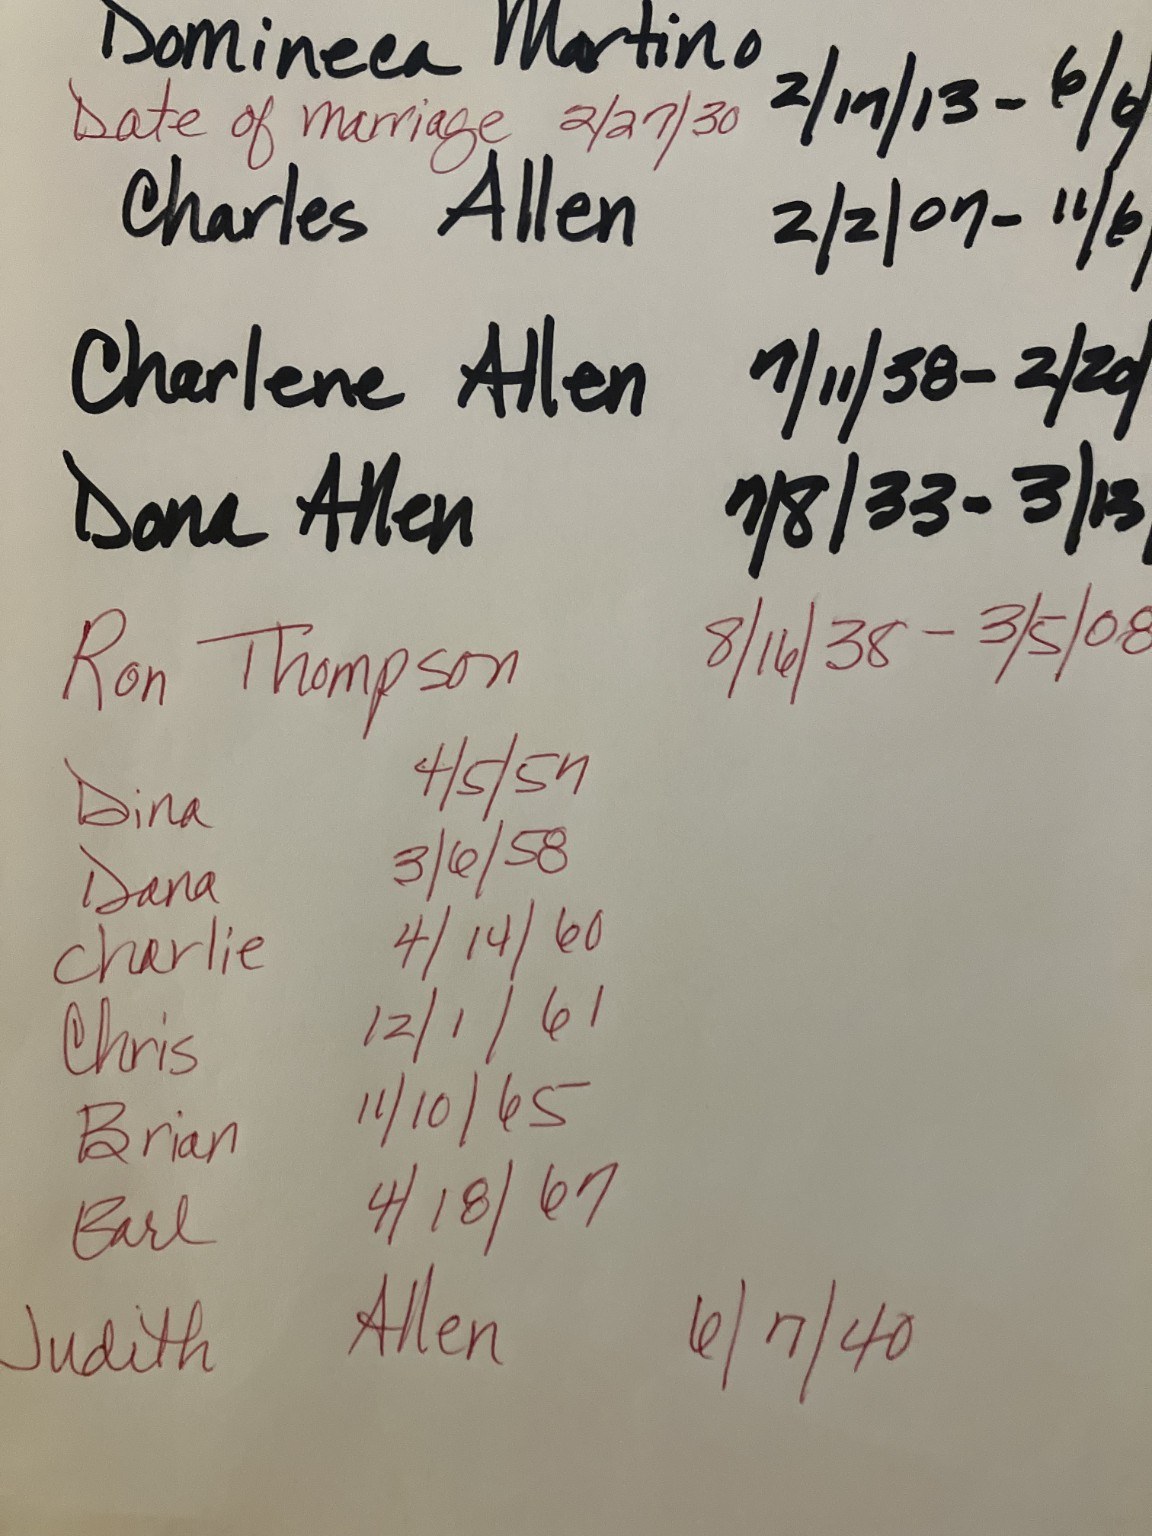 Domineca Martino 2/17/13 - 6/
Date of marriage 2/27/30
Charles Allen 2/2/07 - 11/6/
Charlene Allen 7/11/38 - 2/20/
Dona Allen 7/8/33 - 3/13/
Ron Thompson 8/16/38 - 3/5/08
Dina 4/5/57
Dana 3/6/58
Charlie 4/14/60
Chris 12/1/61
Brian 11/10/65
Earl 4/18/67
Judith Allen 6/7/40